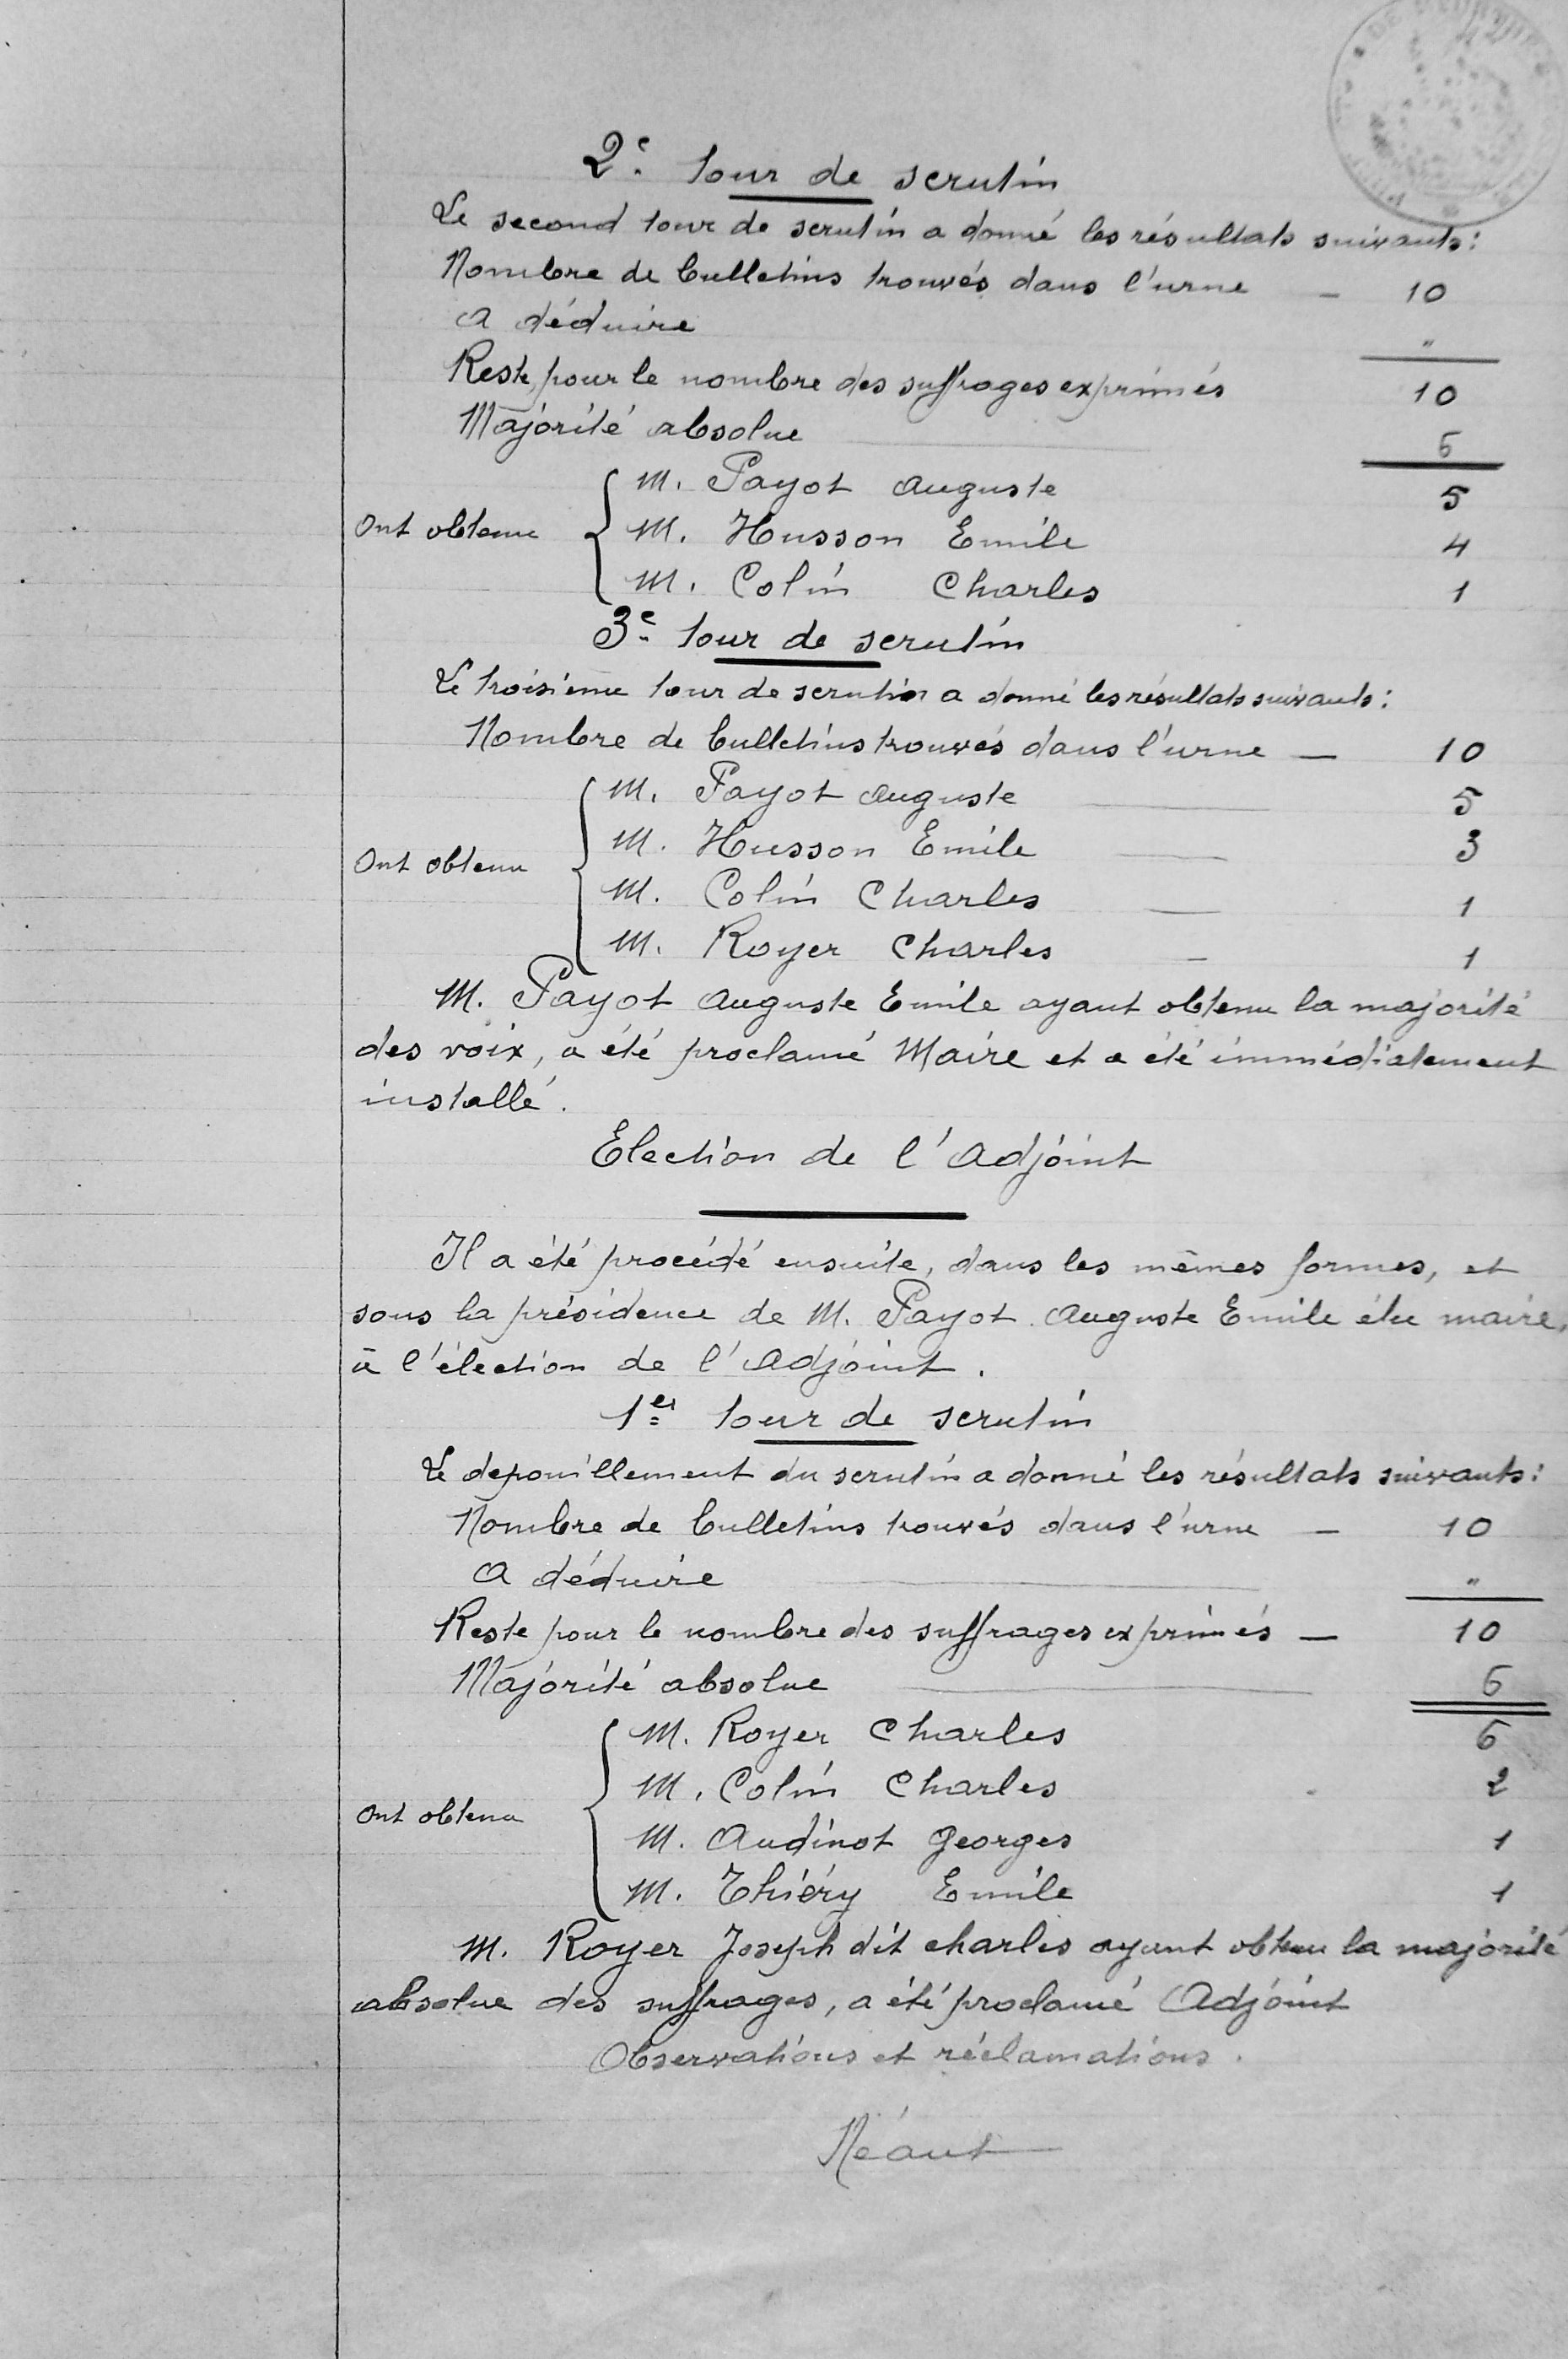 2e tour de scrutin
Le second tour de scrutin a donné les résultats suivants :
Nombre de bulletins trouvés dans l'urne — 10
A déduire "
Reste, pour le nombre des suffrages exprimés 10
Majorité absolue 6
M. Payot Auguste 5
Ont obtenu M. Husson Emile 4
M. Colin Charles 1
3e tour de scrutin
Le troisième tour de scrutin a donné les résultats suivants :
Nombre de bulletins trouvés dans l'urne — 10
M. Payot Auguste — 5
M. Husson Emile — 3
Ont obtenu
M. Colin Charles — 1
M. Royer Charles — 1
M. Payot Auguste Emile ayant obtenu la majorité
des voix, a été proclamé Maire et a été immédiatement
installé.
Election de l'Adjoint
Il a été procédé ensuite, dans les mêmes formes, et
sous la présidence de M. Payot Auguste Emile élu maire,
à l'élection de l'Adjoint.
1er tour de scrutin
Le depouillement du scrutin a donné les résultats suivants :
Nombre de bulletins trouvés dans l'urne — 10
A déduire — "
Reste pour le nombre des suffrages exprimés — 10
Majorité absolue — 6
M. Royer Charles 6
M. Colin Charles 2
Ont obtenu
M. Audinot Georges 1
M. Thiéry Emile 1
M. Royer Joseph dit charles ayant obtenu la majorité
absolue des suffrages, a été proclamé Adjoint
Observations et réclamations.
Néant